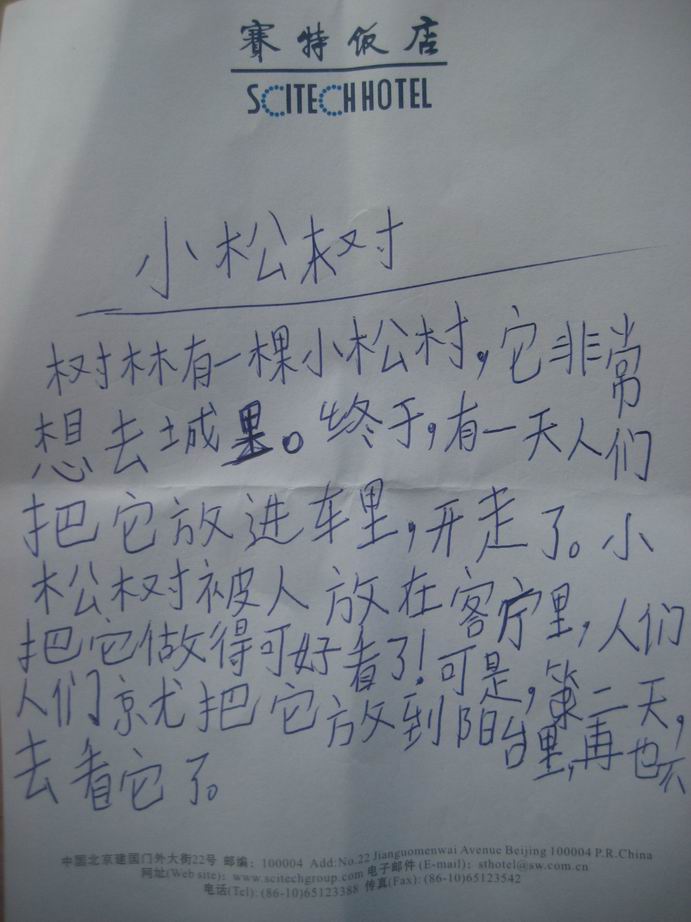 賽特饭店
SCITECH HOTEL
小松树
树林有一棵小松村，它非常
想去城里。终于，有一天人们
把它放进车里，开走了。小
松树被人放在客厅里，人们
把它做得可好看了！可是，第二天，
人们就把它放到阳台里，再也不
去看它了。
中国北京建国门外大街22号 邮编：100004 Add:No.22 Jianguomenwai Avenue Beijing 100004 P.R.China
网址(Web site): www.scitechgroup.com 电子邮件(E-mail): sthotel@sw.com.cn
电话(Tel): (86-10)65123388 传真(Fax): (86-10)65123542